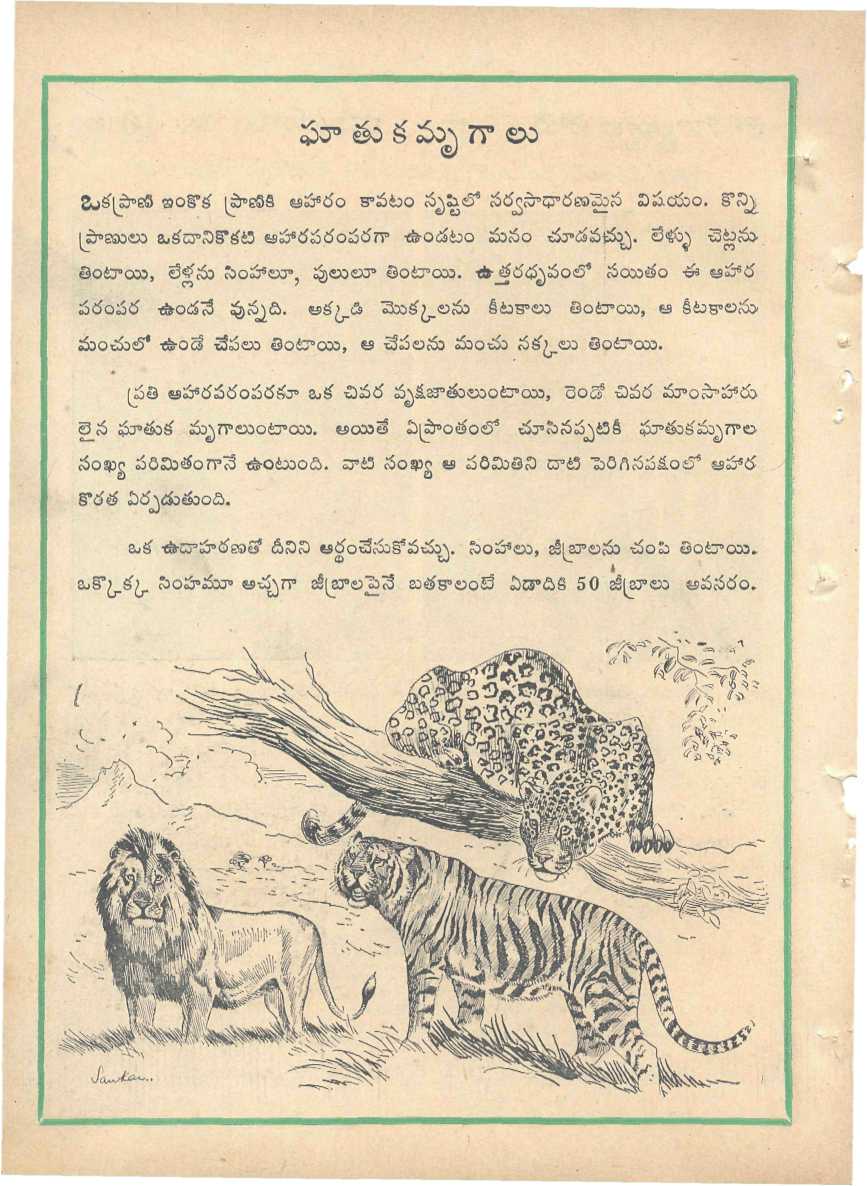 ఘాతుకమృగాలు
ఒకప్రాణి ఇంకొక ప్రాణికి ఆహారం కావటం సృష్టిలో సర్వసాధారణమైన విషయం. కొన్ని
ప్రాణులు ఒకదానికొకటి ఆహారపరంపరగా ఉండటం మనం చూడవచ్చు. లేళ్ళు చెట్లను
తింటాయి, లేళ్లను సింహాలూ, పులులూ తింటాయి. ఉత్తరధృవంలో సయితం ఈ ఆహార
పరంపర ఉండనే వున్నది. అక్కడి మొక్కలను కీటకాలు తింటాయి, ఆ కీటకాలను
మంచులో ఉండే చేపలు తింటాయి, ఆ చేపలను మంచు నక్కలు తింటాయి.
ప్రతి ఆహారపరంపరకూ ఒక చివర వృక్షజాతులుంటాయి, రెండో చివర మాంసాహారు
లైన ఘాతుక మృగాలుంటాయి. అయితే ఏప్రాంతంలో చూసినప్పటికీ ఘాతుకమృగాల
సంఖ్య పరిమితంగానే ఉంటుంది. వాటి సంఖ్య ఆ పరిమితిని దాటి పెరిగినపక్షంలో ఆహార
కొరత ఏర్పడుతుంది.
ఒక ఉదాహరణతో దీనిని అర్థంచేసుకోవచ్చు. సింహాలు, జీబ్రాలను చంపి తింటాయి.
ఒక్కొక్క సింహమూ అచ్చగా జీబ్రాలపైనే బతకాలంటే ఏడాదికి 50 జీబ్రాలు అవసరం.
Sankar..